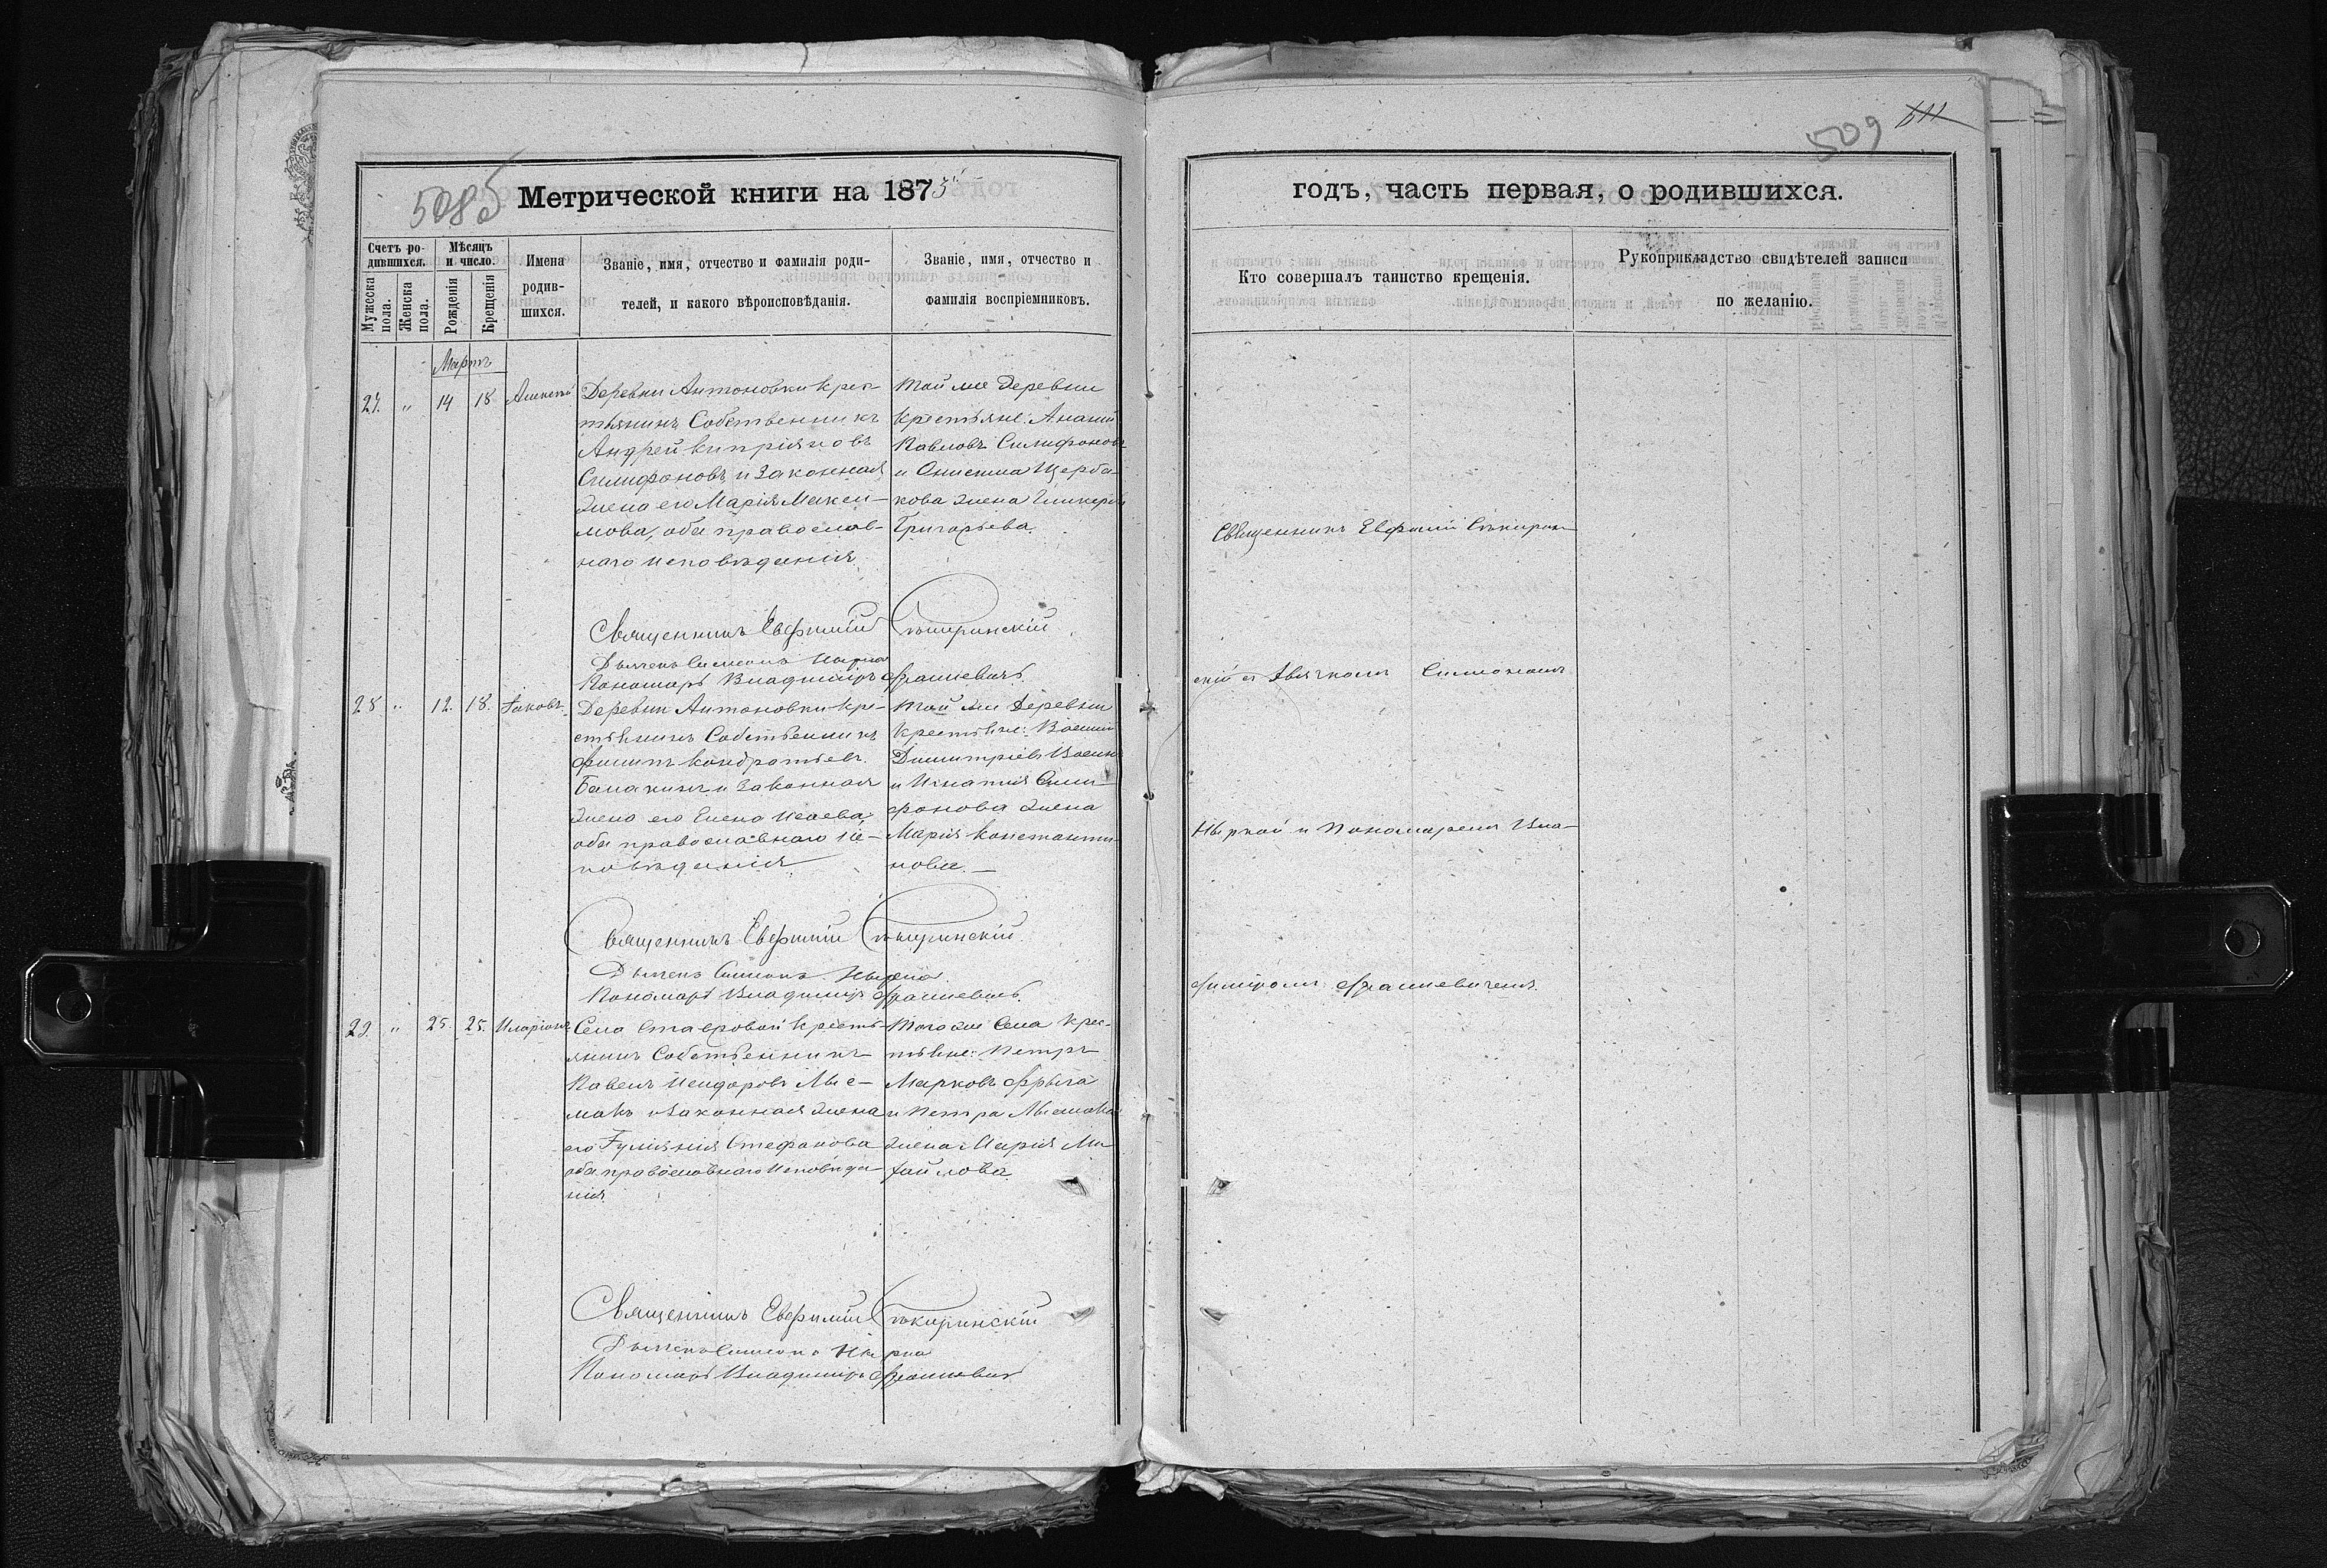 508б
Метрической книги на 1873й
Счетъ ро-
дившихся.
Мужеска пола.
Женска пола.
Мѣсяцъ
и число.
Рожденія
Крещенія
Имена
родив-
шихся.
Званіе, имя, отчество и фамилія роди-
телей, и какого вѣроисповѣданія.
Званіе, имя, отчество и
фамилія воспріемниковъ.
Мартъ
27. " 14 18 Алексѣй
Деревни Антоновки крес-
тьянинъ Собственникъ
Андрей Кипріяновъ
Силифоновъ и законная
жена его Марія Макси-
мова, оба православ-
наго исповѣданія
Той же деревни
крестьяне: Ананій
Павловъ Силифоновъ
и Онисима Щерба-
кова жена Гликерія
Григорьева.
Священникъ Евфимій Сткиринскій
Дьячекъ Симеонъ Нырка
Пономарь Владиміръ
28 " 12. 18. Іаковъ.
Деревни Антоновки кре-
стьянинъ Собственникъ
Филипъ Кондратьевъ
Балакинъ и законная
жена его Елена Исаева,
оба православнаго ис-
повѣданія
Той же деревни
крестьяне:
Димитріевъ
и Игнатія Сили-
фонова жена
Марія Константи-
нова. —
Священникъ Евфимій
Дьячекъ Симеонъ Нырка
Пономарь Владиміръ
29. " 25. 25. Иларіонъ
Села Ставровой кресть-
янинъ Собственникъ
Павелъ Исидоровъ Лыс-
макъ и законная жена
его Гуліянія Стефанова
оба православнаго исповѣда-
нія
Того же Села крес-
тьяне: Петръ
Марковъ
и Петра
жена Марія Ми-
хайлова.
Священникъ Евфимій
Дьячекъ Симеонъ Нырка
Пономарь Владиміръ
509
511
годъ, часть первая, о родившихся.
Кто совершалъ таинство крещенія.
Рукоприкладство свидѣтелей записи
по желанію.
Священникъ Евфимій
скій съ Дьячкомъ Симеономъ
Ныркой и Пономаремъ Вла-
диміромъ